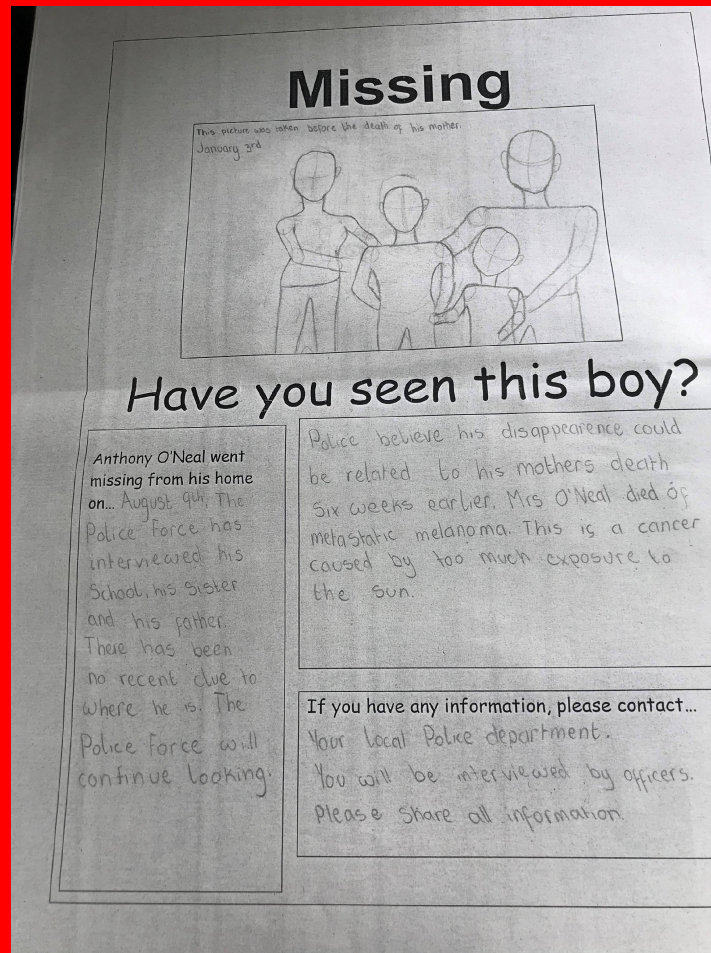 Missing
This picture was taken before the death of his mother.
January 3rd
Have you seen this boy?
Anthony O'Neal went
missing from his home
on... August 9th. The
Police Force has
interviewed his
School, his sister
and his father.
There has been
no recent clue to
where he is. The
Police Force will
continue looking.
Police believe his disappearence could
be related to his mothers death
Six weeks earlier. Mrs O'Neal died of
metastatic melanoma. This is a cancer
caused by too much exposure to
the sun.
If you have any information, please contact...
Your Local Police department.
You will be interviewed by officers.
Please share all information.